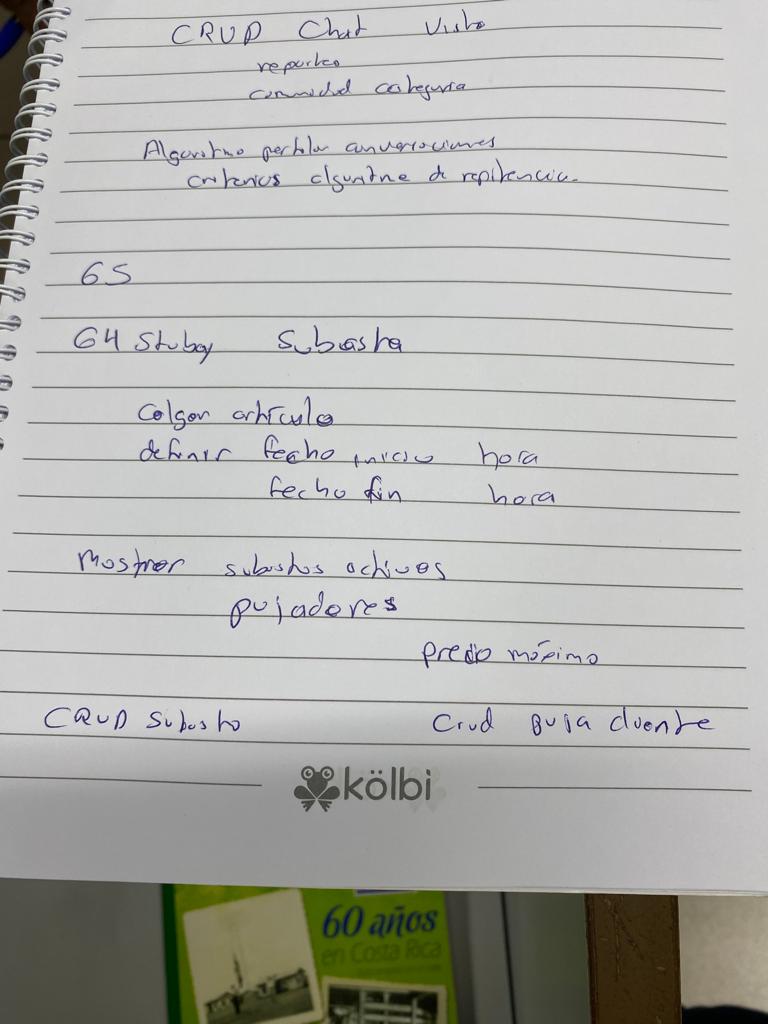 CRUD Chat Visto
reportes
comunidad categoria
Algoritmo perfilar conversaciones
criterios algoritmo de repitencia.
GS
G4 Stubay Subasta
Colgar artículo
definir fecha inicio hora
fecha fin hora
Mostrar subastas activas
pujadores
precio máximo
CRUD Subasta Crud puja cliente
kölbi
60 años
en Costa Rica